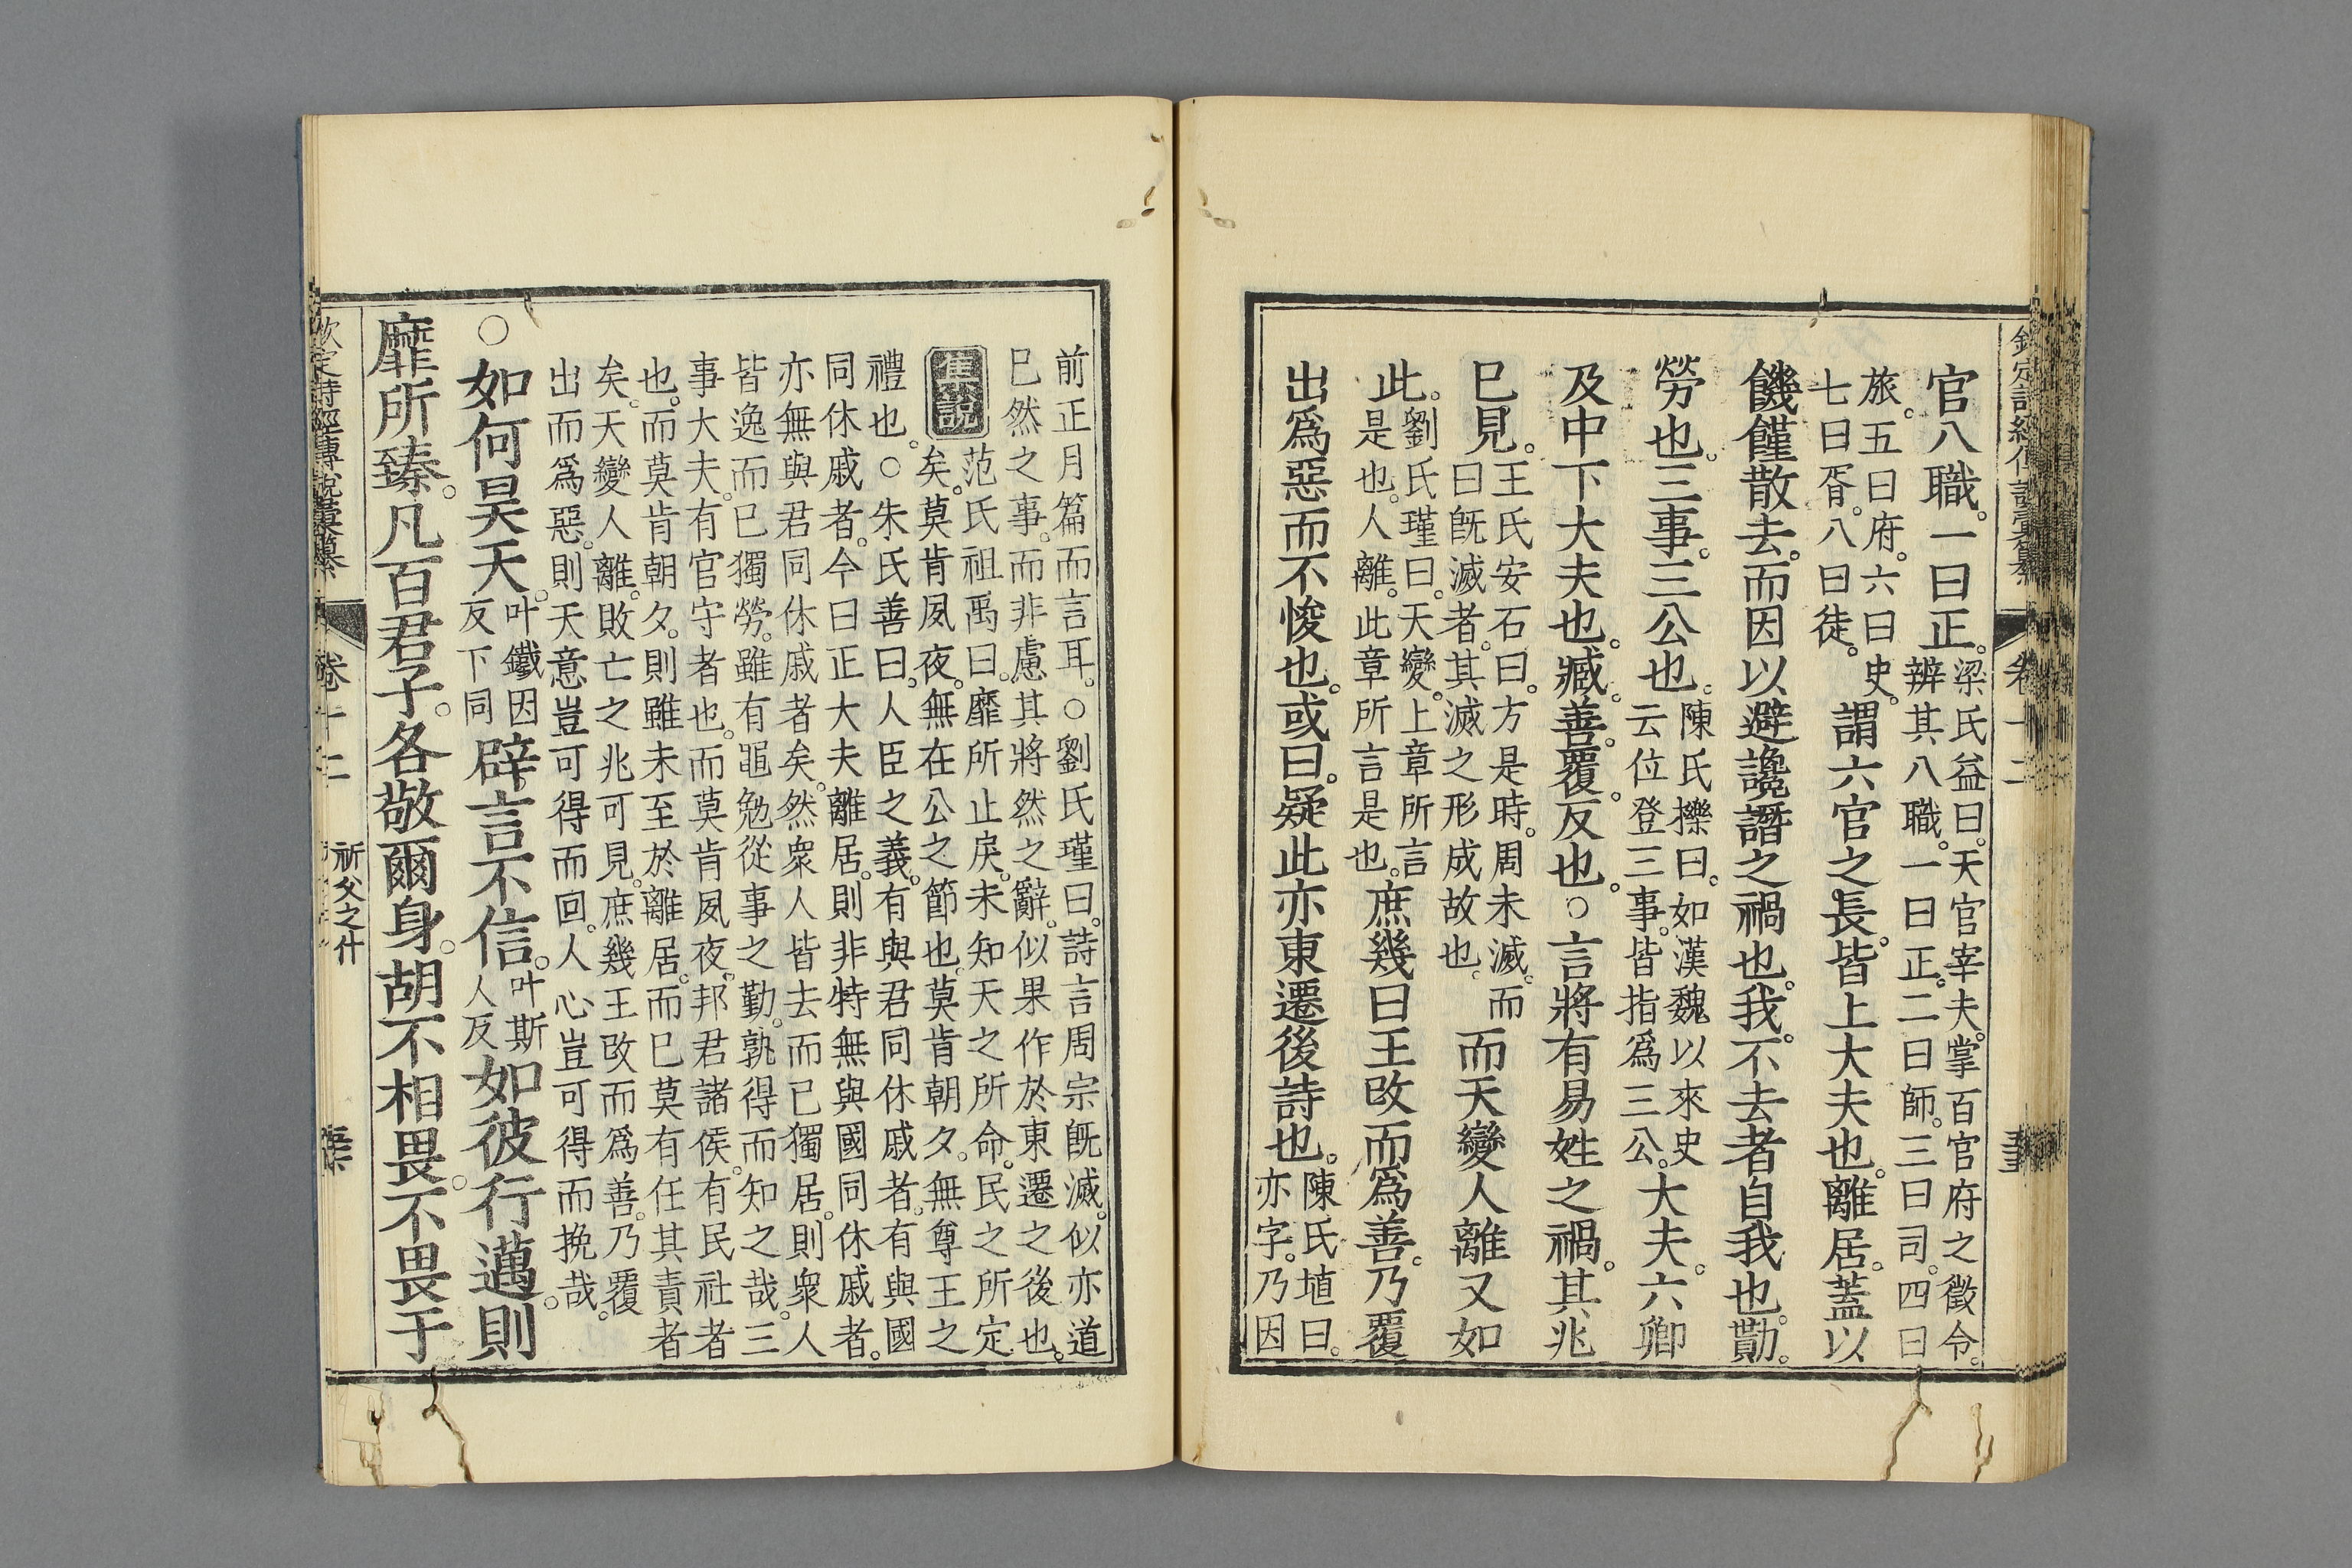 官八職。一曰正。梁氏益曰。天官宰夫。掌百官府之徵令。辨其八職。一曰正。二曰師。三曰司。四曰
旅。五曰府。六曰史。七曰胥。八曰徒。謂六官之長。皆上大夫也。離居。蓋以
饑饉散去。而因以避讒譖之禍也。我。不去者自我也。勩。
勞也。三事。三公也。陳氏擽曰。如漢魏以來史云位登三事。皆指爲三公。大夫。六卿
及中下大夫也。臧。善。覆。反也。○言將有易姓之禍。其兆
已見。王氏安石曰。方是時。周未滅。而曰旣滅者。其滅之形成故也。而天變人離又如
此。劉氏瑾曰。天變。上章所言是也。人離。此章所言是也。庶幾曰王改而爲善。乃覆
出爲惡而不悛也。或曰。疑此亦東遷後詩也。陳氏埴曰。亦字。乃因
前正月篇而言耳。○劉氏瑾曰。詩言周宗旣滅。似亦道
已然之事。而非慮其將然之辭。似果作於東遷之後也。
集說 范氏祖禹曰。靡所止戾。未知天之所命。民之所定
矣。莫肯夙夜。無在公之節也。莫肯朝夕。無尊王之
禮也。○朱氏善曰。人臣之義。有與君同休戚者。有與國
同休戚者。今曰正大夫離居。則非特無與國同休戚者。
亦無與君同休戚者矣。然衆人皆去而已獨居。則衆人
皆逸而已獨勞。雖有黽勉從事之勤。孰得而知之哉。三
事大夫。有官守者也。而莫肯夙夜。邦君諸侯。有民社者
也。而莫肯朝夕。則雖未至於離居。而已莫有任其責者
矣。天變人離。敗亡之兆可見。庶幾王改而爲善。乃覆
出而爲惡。則天意豈可得而回。人心豈可得而挽哉。
○如何昊天。叶鐵因反下同辟言不信。叶斯人反如彼行邁。則
靡所臻。凡百君子。各敬爾身。胡不相畏。不畏于
欽定詩經傳說彙纂 卷十二 祈父之什